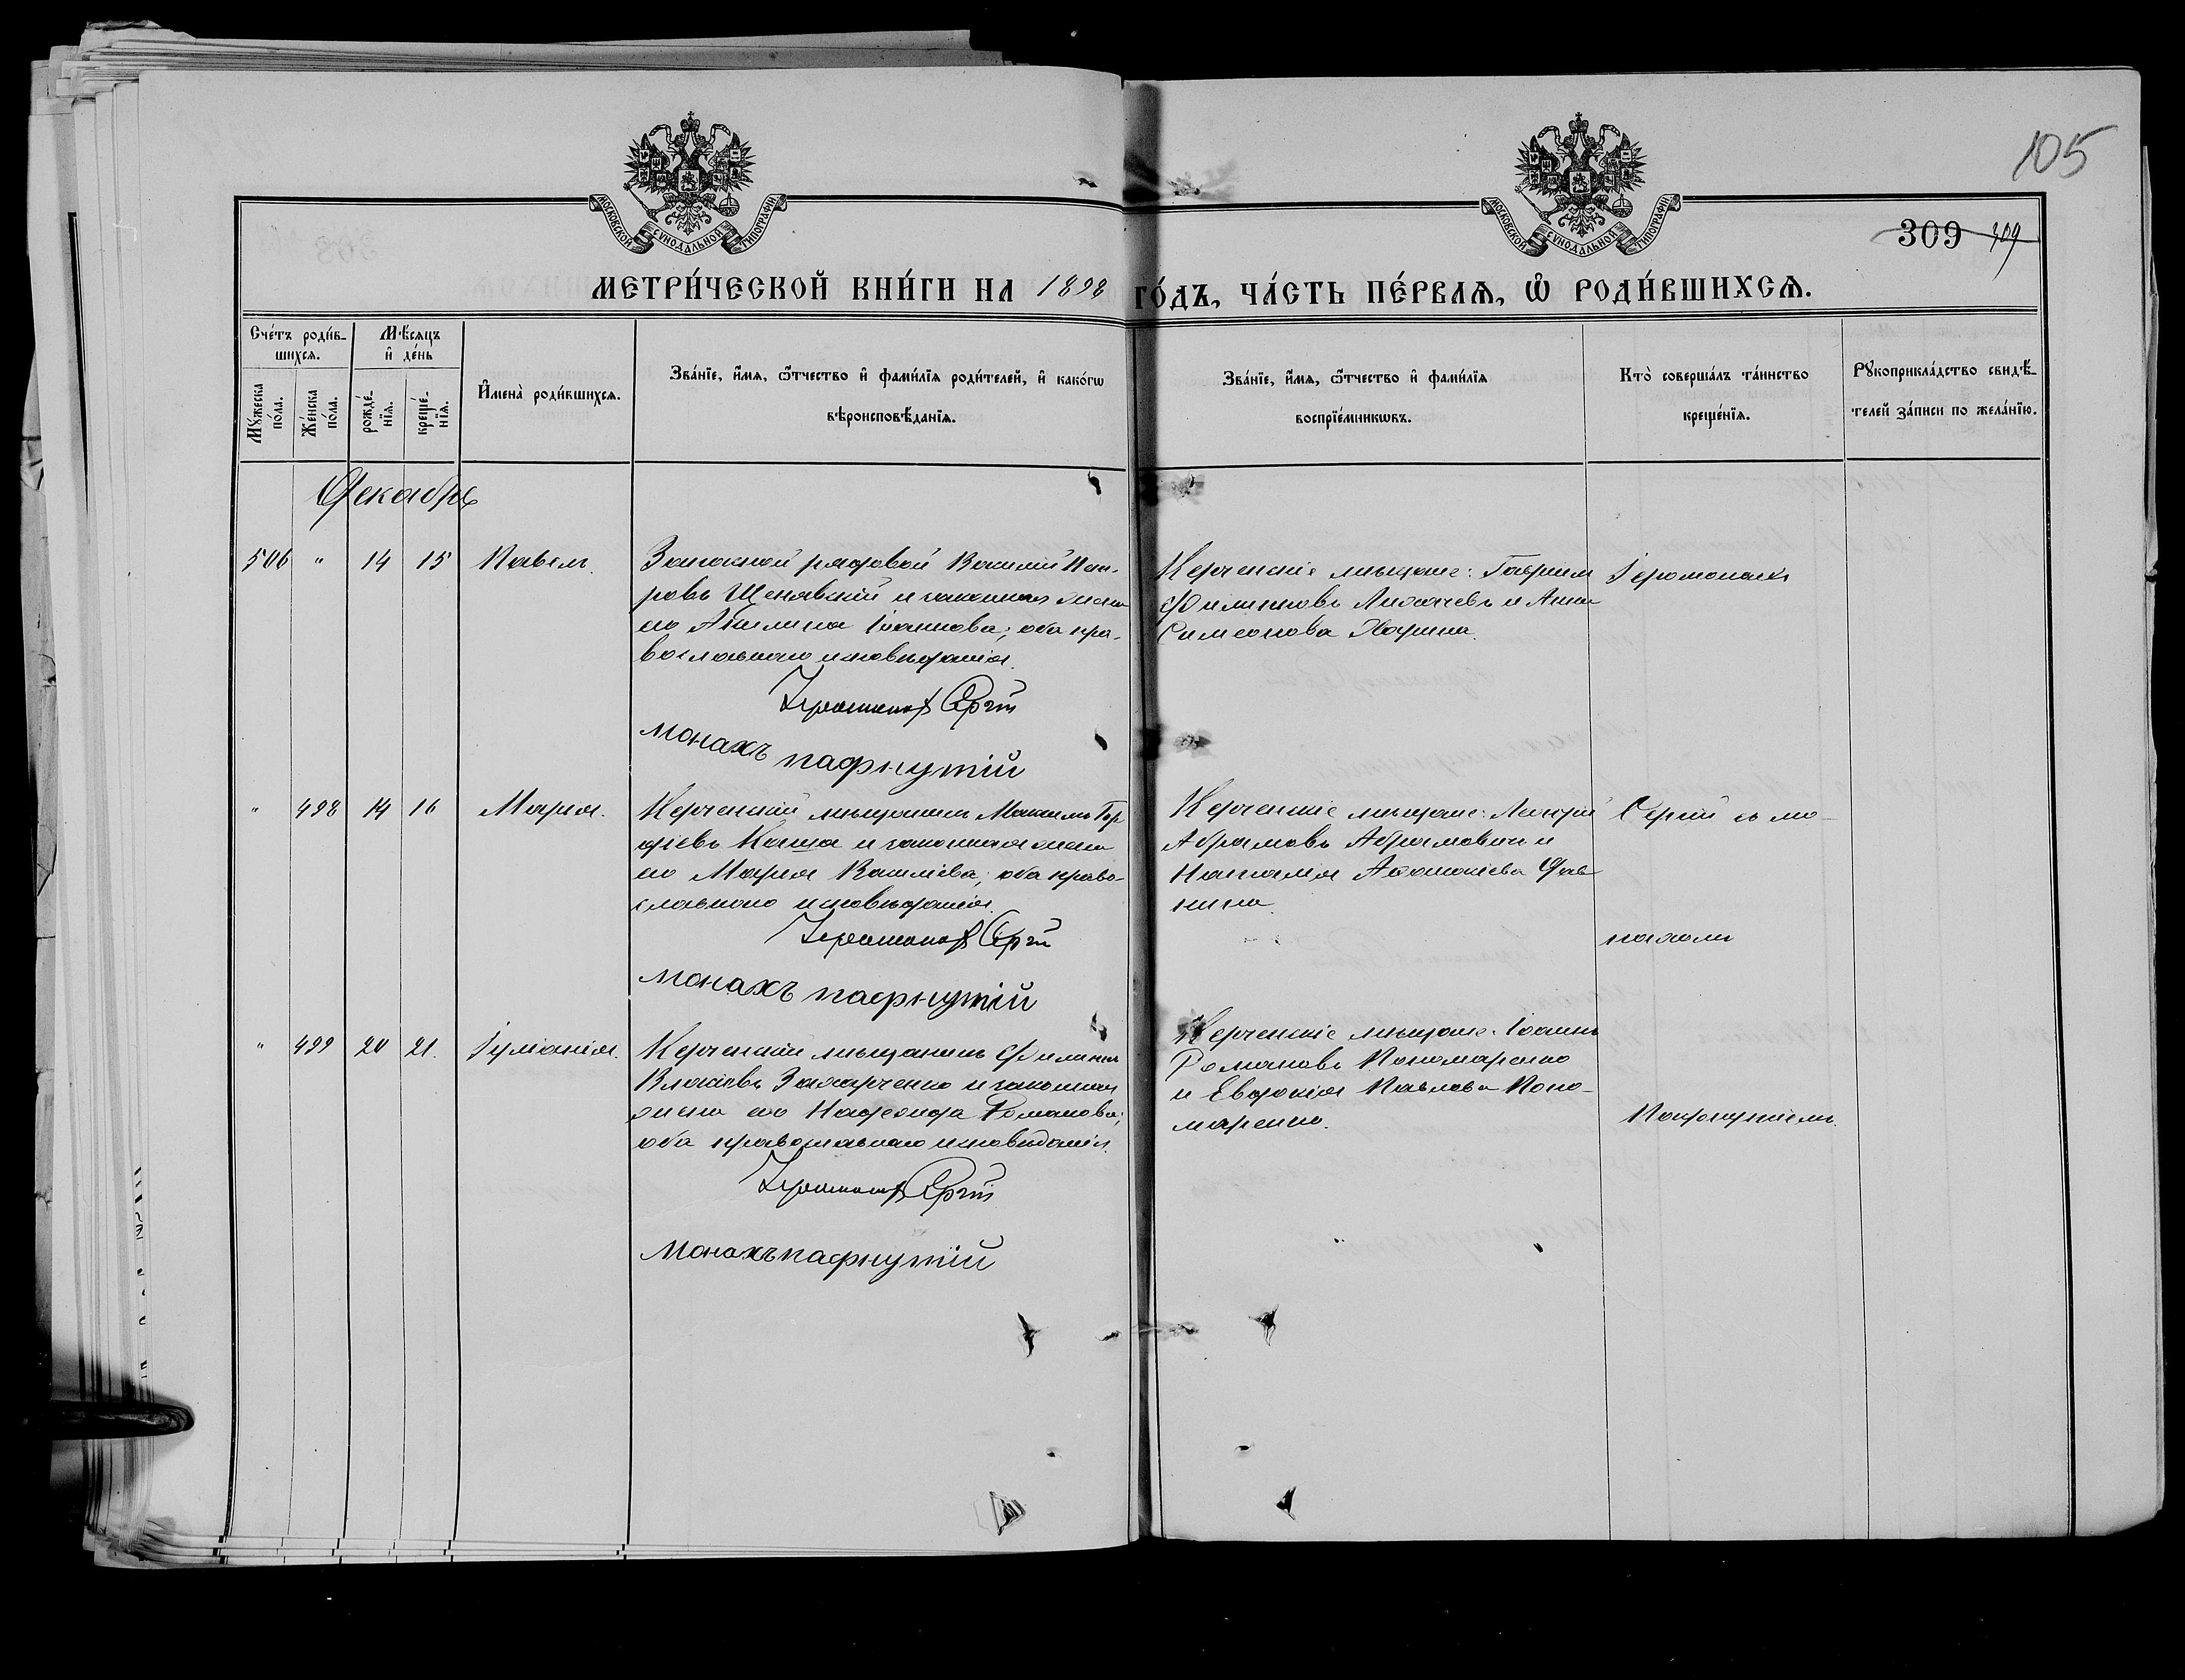 105
МОСКОВСКОЙ СѴНОДАЛЬНОЙ ТИПОГРАФІИ
МОСКОВСКОЙ СѴНОДАЛЬНОЙ ТИПОГРАФІИ
309 309
МЕТРИ́ЧЕСКОЙ КНИ́ГИ НА 1898 ГО́ДЪ, ЧА́СТЬ ПЕ́РВАѦ, Ѽ РОДИ́ВШИХСѦ.
Сче́тъ роди́в-
шихсѧ.
Мꙋ́жеска по́ла.
Же́нска по́ла.
Мѣ́сѧцъ и҆ де́нь
рожде́-нїѧ.
креще́-нїѧ.
И҆мена̀ роди́вшихсѧ.
Зва́нїе, и҆́мѧ, ѻ҆́тчество и҆ фами́лїѧ роди́телей, и҆ како́гѡ
вѣроисповѣ́данїѧ.
Зва́нїе, и҆́мѧ, ѻ҆́тчество и҆ фами́лїѧ
воспрїе́мникѡвъ.
Кто̀ соверша́лъ та́инство
креще́нїѧ.
Рꙋкоприкла́дство свидѣ́-
телей за́писи по жела́нїю.
Декабрь
506 " 14 15 Павелъ.
Запасной рядовой Василій
ровъ и законная жена
его Акилина Іоаннова; оба пра-
вославнаго исповѣданія.
Іеромонахъ Сергій
монахъ пафнутій
Керченскіе мѣщане: Гавріилъ
Филипповъ Лихачевъ и Анна
Симеонова
Іеромонахъ
" 498 14 16 Марія.
Керченскій мѣщанинъ Максимъ Гор
діевъ Каша и законная жена
его Марія Василіева; оба право-
славнаго исповѣданія.
Іеромонахъ Сергій
монахъ пафнутій
Керченскіе мѣщане: Леонтій
Абрамовъ Абрамовичъ и
Наталія Афанасіева
нина.
Сергій съ мо-
нахомъ
" 499 20 21. Іуліанія.
Керченскій мѣщанинъ Филиппъ
Власіевъ Захарченко и законная
жена его Надежда Романова;
оба православнаго исповѣданія.
Іеромонахъ Сергій
монахъ пафнутій
Керченскіе мѣщане: Іоаннъ
Романовъ Пономаренко
и Евдокія Павлова Поно-
маренко.
Пафнутіемъ.